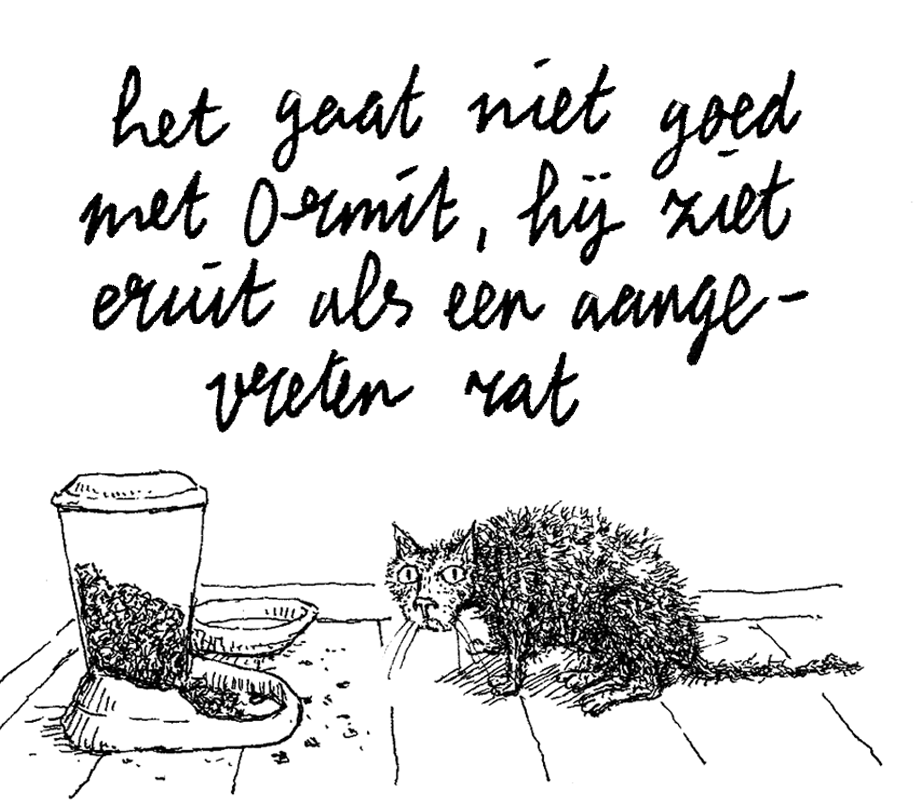 het gaat niet goed
met Ormit, hij ziet
eruit als een aange-
vreten rat